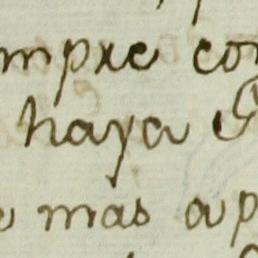 mpre con
haya
mas ap